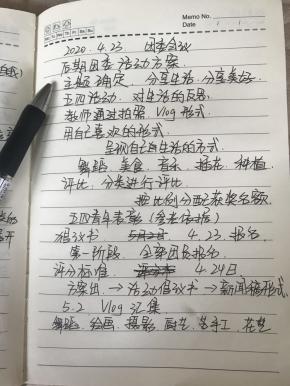 Memo No.
Date
2020.4.23 团委会议
后期团委活动方案.
主题确定, 分享生活·分享美好.
五四活动. 对生活的反思.
教师通过拍照. Vlog 形式.
用自己喜欢的形式.
呈现自己的生活的方式.
舞蹈 美食. 音乐. 插花. 种植.
评比. 分类进行评比.
按比例分配获奖名额.
五四青年表彰
倡议书 4.23. 报名.
第一阶段. 全部团员报名.
评分标准. 4.24日
方案出 → 活动倡议书 → 新闻稿形式.
5.2 Vlog 汇集
舞蹈. 绘画. 摄影. 厨艺. 手工. 花艺